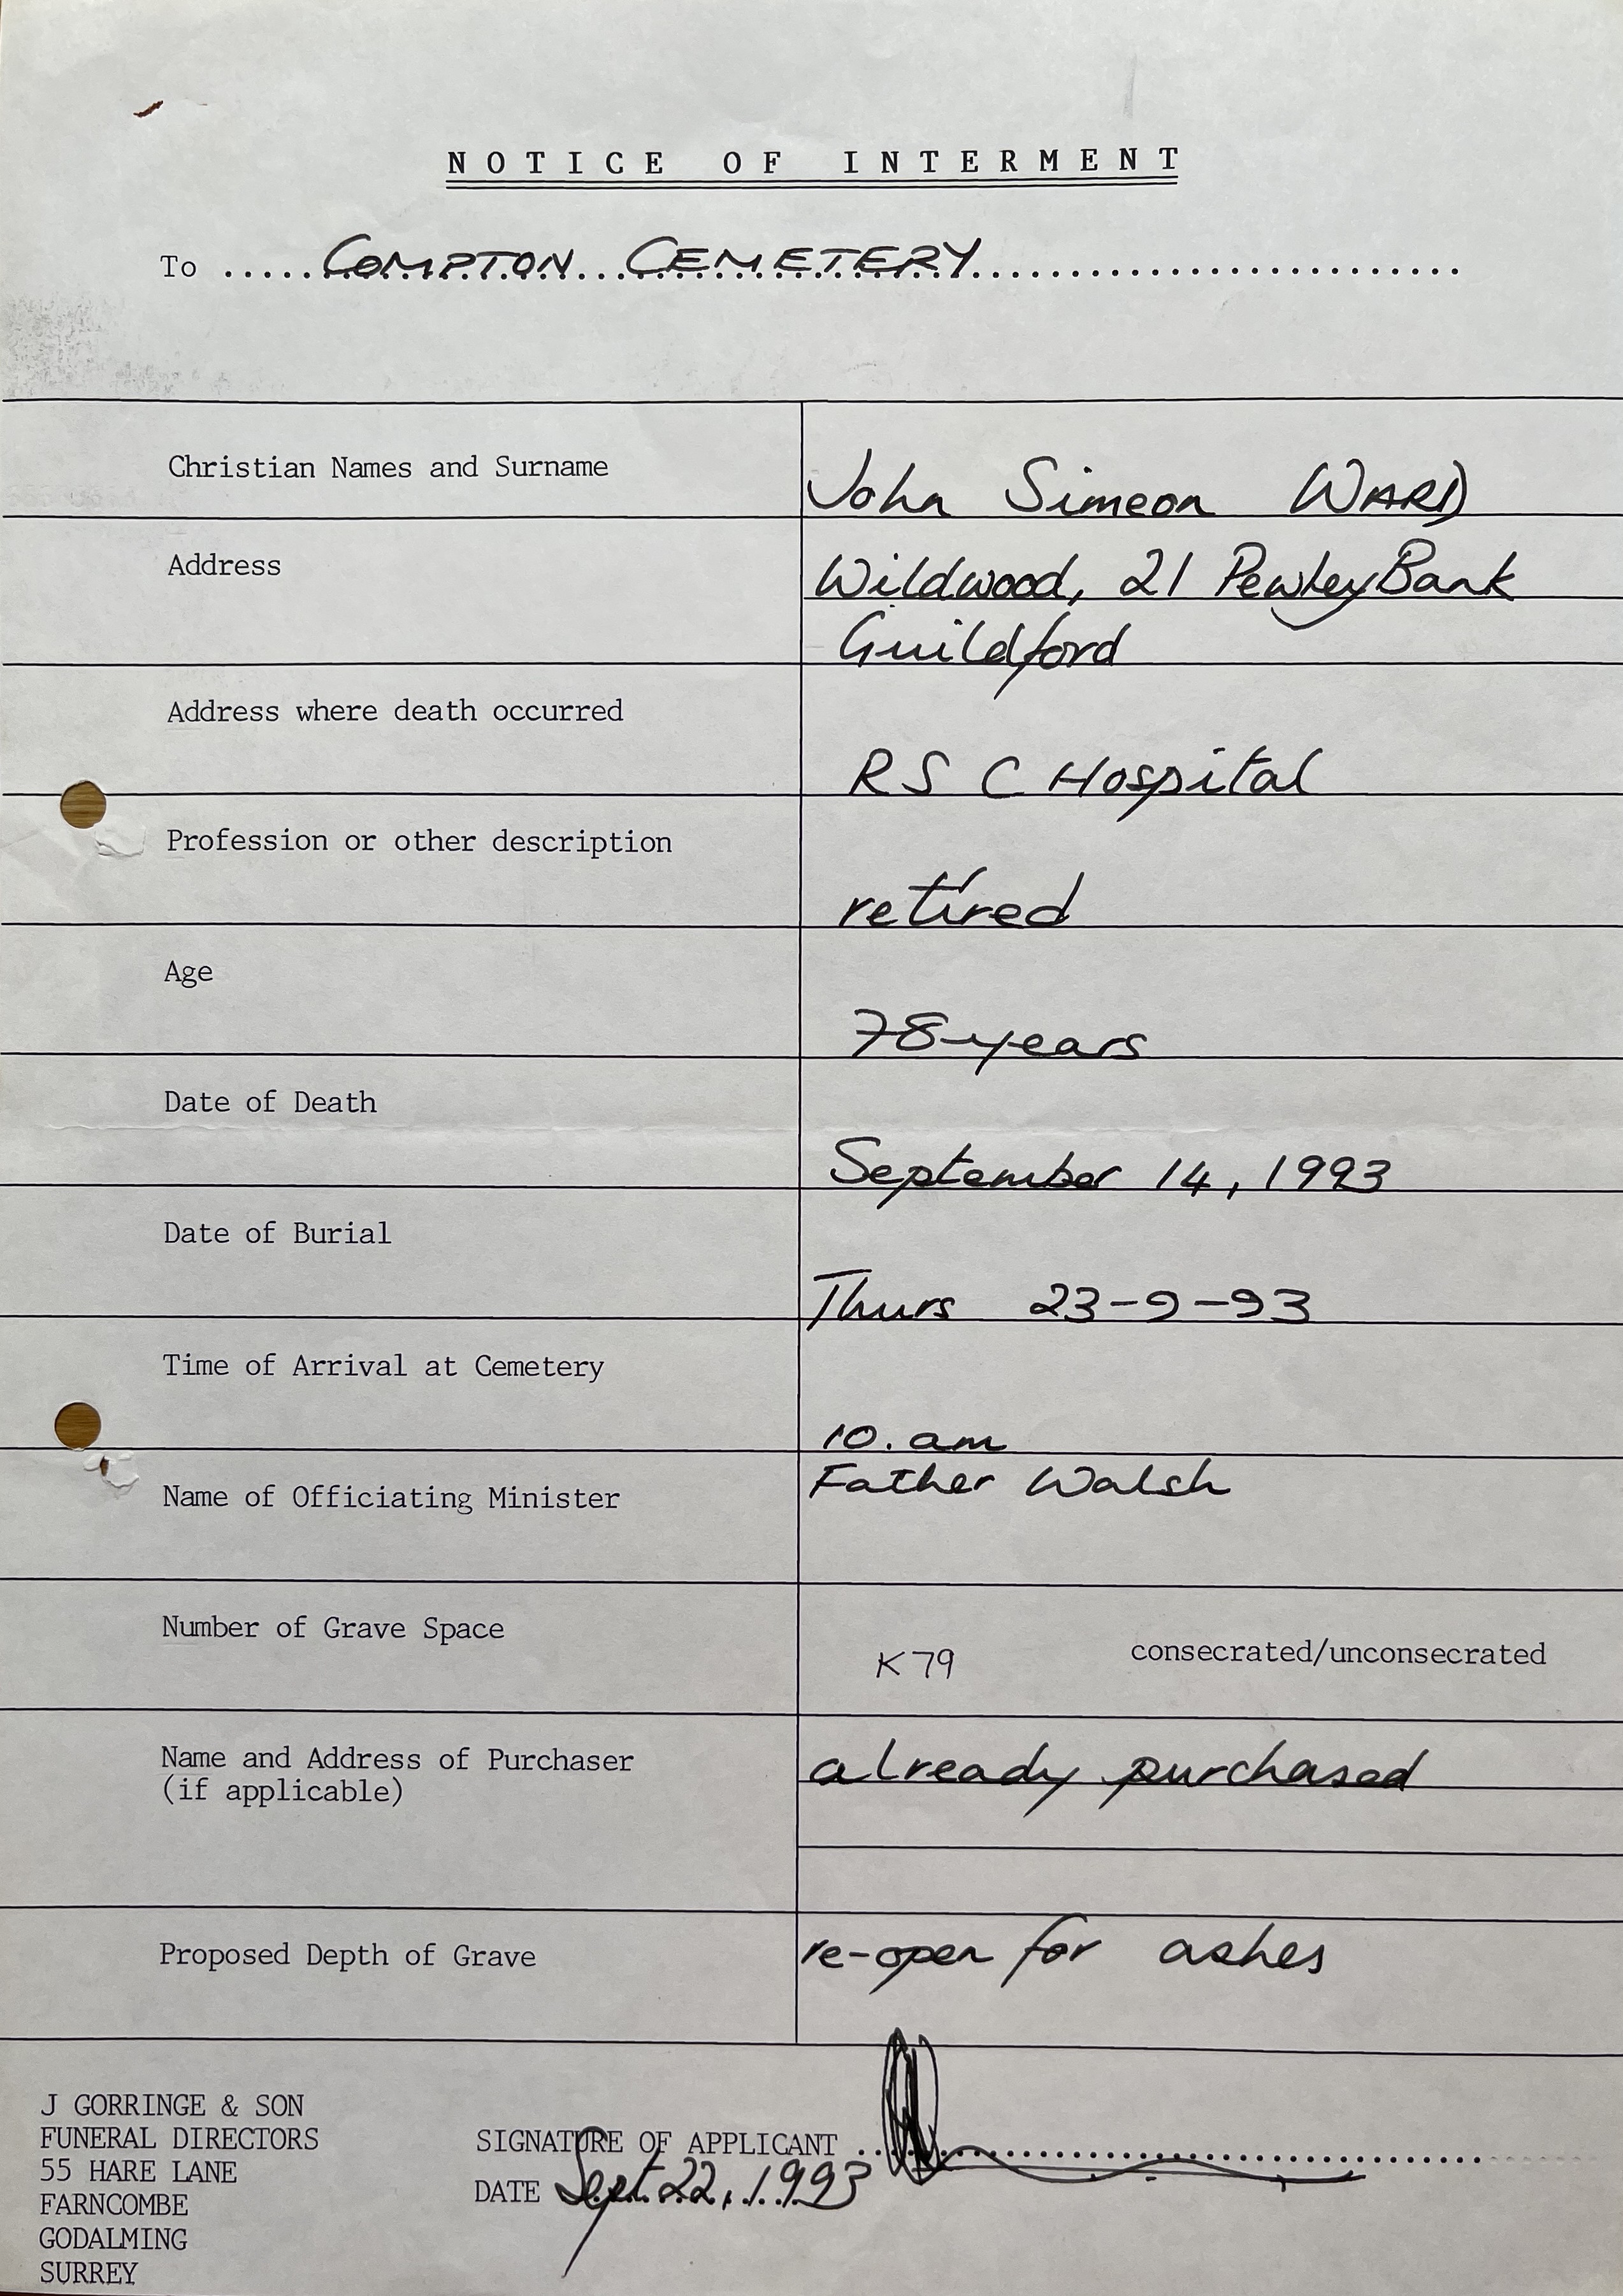 NOTICE OF INTERMENT
To ..... COMPTON CEMETERY .....
Christian Names and Surname John Simeon WARD
Address Wildwood, 21 Pewley Bank
Guildford
Address where death occurred
R S C Hospital
Profession or other description
retired
Age
78 years
Date of Death
September 14, 1993
Date of Burial
Thurs 23-9-93
Time of Arrival at Cemetery
10.am
Name of Officiating Minister Father Walsh
Number of Grave Space K79 consecrated/unconsecrated
Name and Address of Purchaser already purchased
(if applicable)
Proposed Depth of Grave re-open for ashes
J GORRINGE & SON
FUNERAL DIRECTORS
55 HARE LANE
FARNCOMBE
GODALMING
SURREY
SIGNATURE OF APPLICANT
DATE Sept 22, 1993